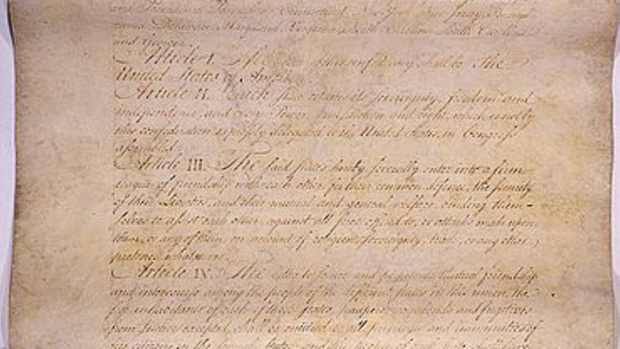 and Providence Plantations Connecticut New York New Jersey Pennsyl
vania Delaware Maryland Virginia North Carolina South Carolina
and Georgia
Article I. The Stile of this confederacy shall be The
United States of America
Article II. Each state retains its sovereignty, freedom and
independence, and every Power, Jurisdiction and right, which is not by
this confederation expressly delegated to the United States, in Congress
assembled.
Article III. The said states hereby severally enter into a firm
league of friendship with each other, for their common defence, the security
of their Liberties, and their mutual and general welfare, binding them-
selves to assist each other, against all force offered to, or attacks made upon
them, or any of them, on account of religion, sovereignty, trade, or any other
pretence whatever.
Article IV. The better to secure and perpetuate mutual friendship
and intercourse among the people of the different states in this union, the
free inhabitants of each of these states, paupers, vagabonds and fugitives
from Justice excepted, shall be entitled to all privileges and immunities of
free citizens in the several states